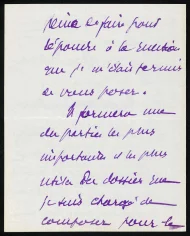 peine de faire pour
répondre à la question
que je m'étais permis
de vous poser.
Il formera une
des parties les plus
importantes et les plus
utiles du dossier que
je suis chargé de
composer pour la